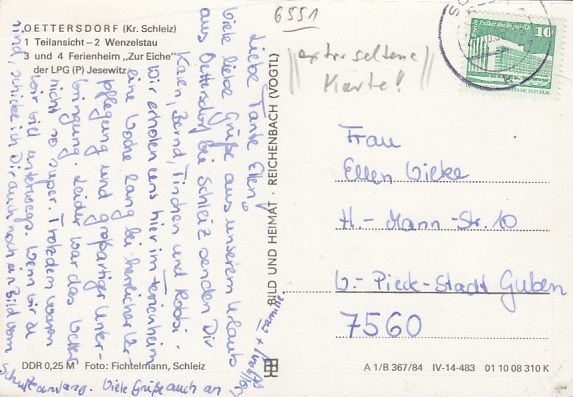 OETTERSDORF (Kr. Schleiz)
1 Teilansicht – 2 Wenzelstau
3 und 4 Ferienheim „Zur Eiche"
der LPG (P) Jesewitz
6551
extra seltene
Karte!
10
Liebe Tante Ellen,
viele liebe Grüße aus unserem Urlaub
aus Oettersdorf bei Schleiz senden Dir
Karen, Bernd, Tinchen und Robbi -
Wir erholen uns hier im Ferienheim
eine Woche lang bei herrlicher Ver-
pflegung und großartiger Unter-
bringung. Leider war das Wetter
nicht so super. Trotzdem waren
wir viel unterwegs. Wenn wir zu
sind, schicke ich Dir auch noch ein Bild vom
Schulanfang. Viele Grüße auch an
+ Familie
BILD UND HEIMAT REICHENBACH (VOGTL)
Frau
Ellen Wieke
H.-Mann-Str. 10
W.-Pieck-Stadt Guben
7560
DDR 0,25 M Foto: Fichtelmann, Schleiz
A 1/B 367/84 IV-14-483 01 10 08 310 K